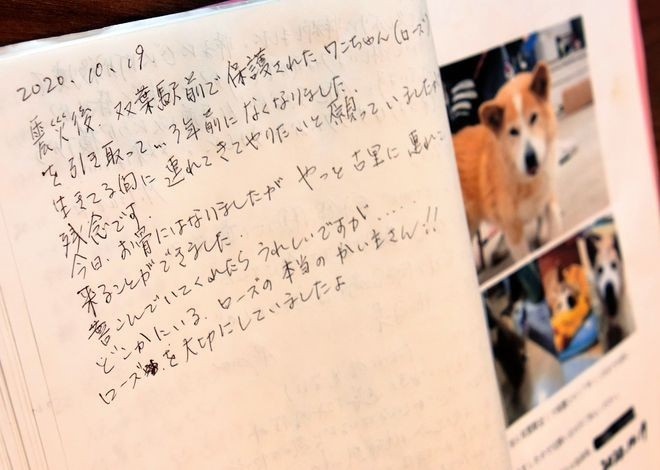 2020.10.19.
震災後、双葉駅前で保護されたワンちゃん(ローズ
を引き取って…3年前になくなりました.
生きてる間に連れてきてやりたいと願っていましたが
残念です.
今日、お骨にはなりましたが やっと古里に連れに
来ることができました.
喜こんでいてくれたらうれしいですが……
どこかにいる、ローズの本当のかい主さん!!
ローズを大切にしていましたよ